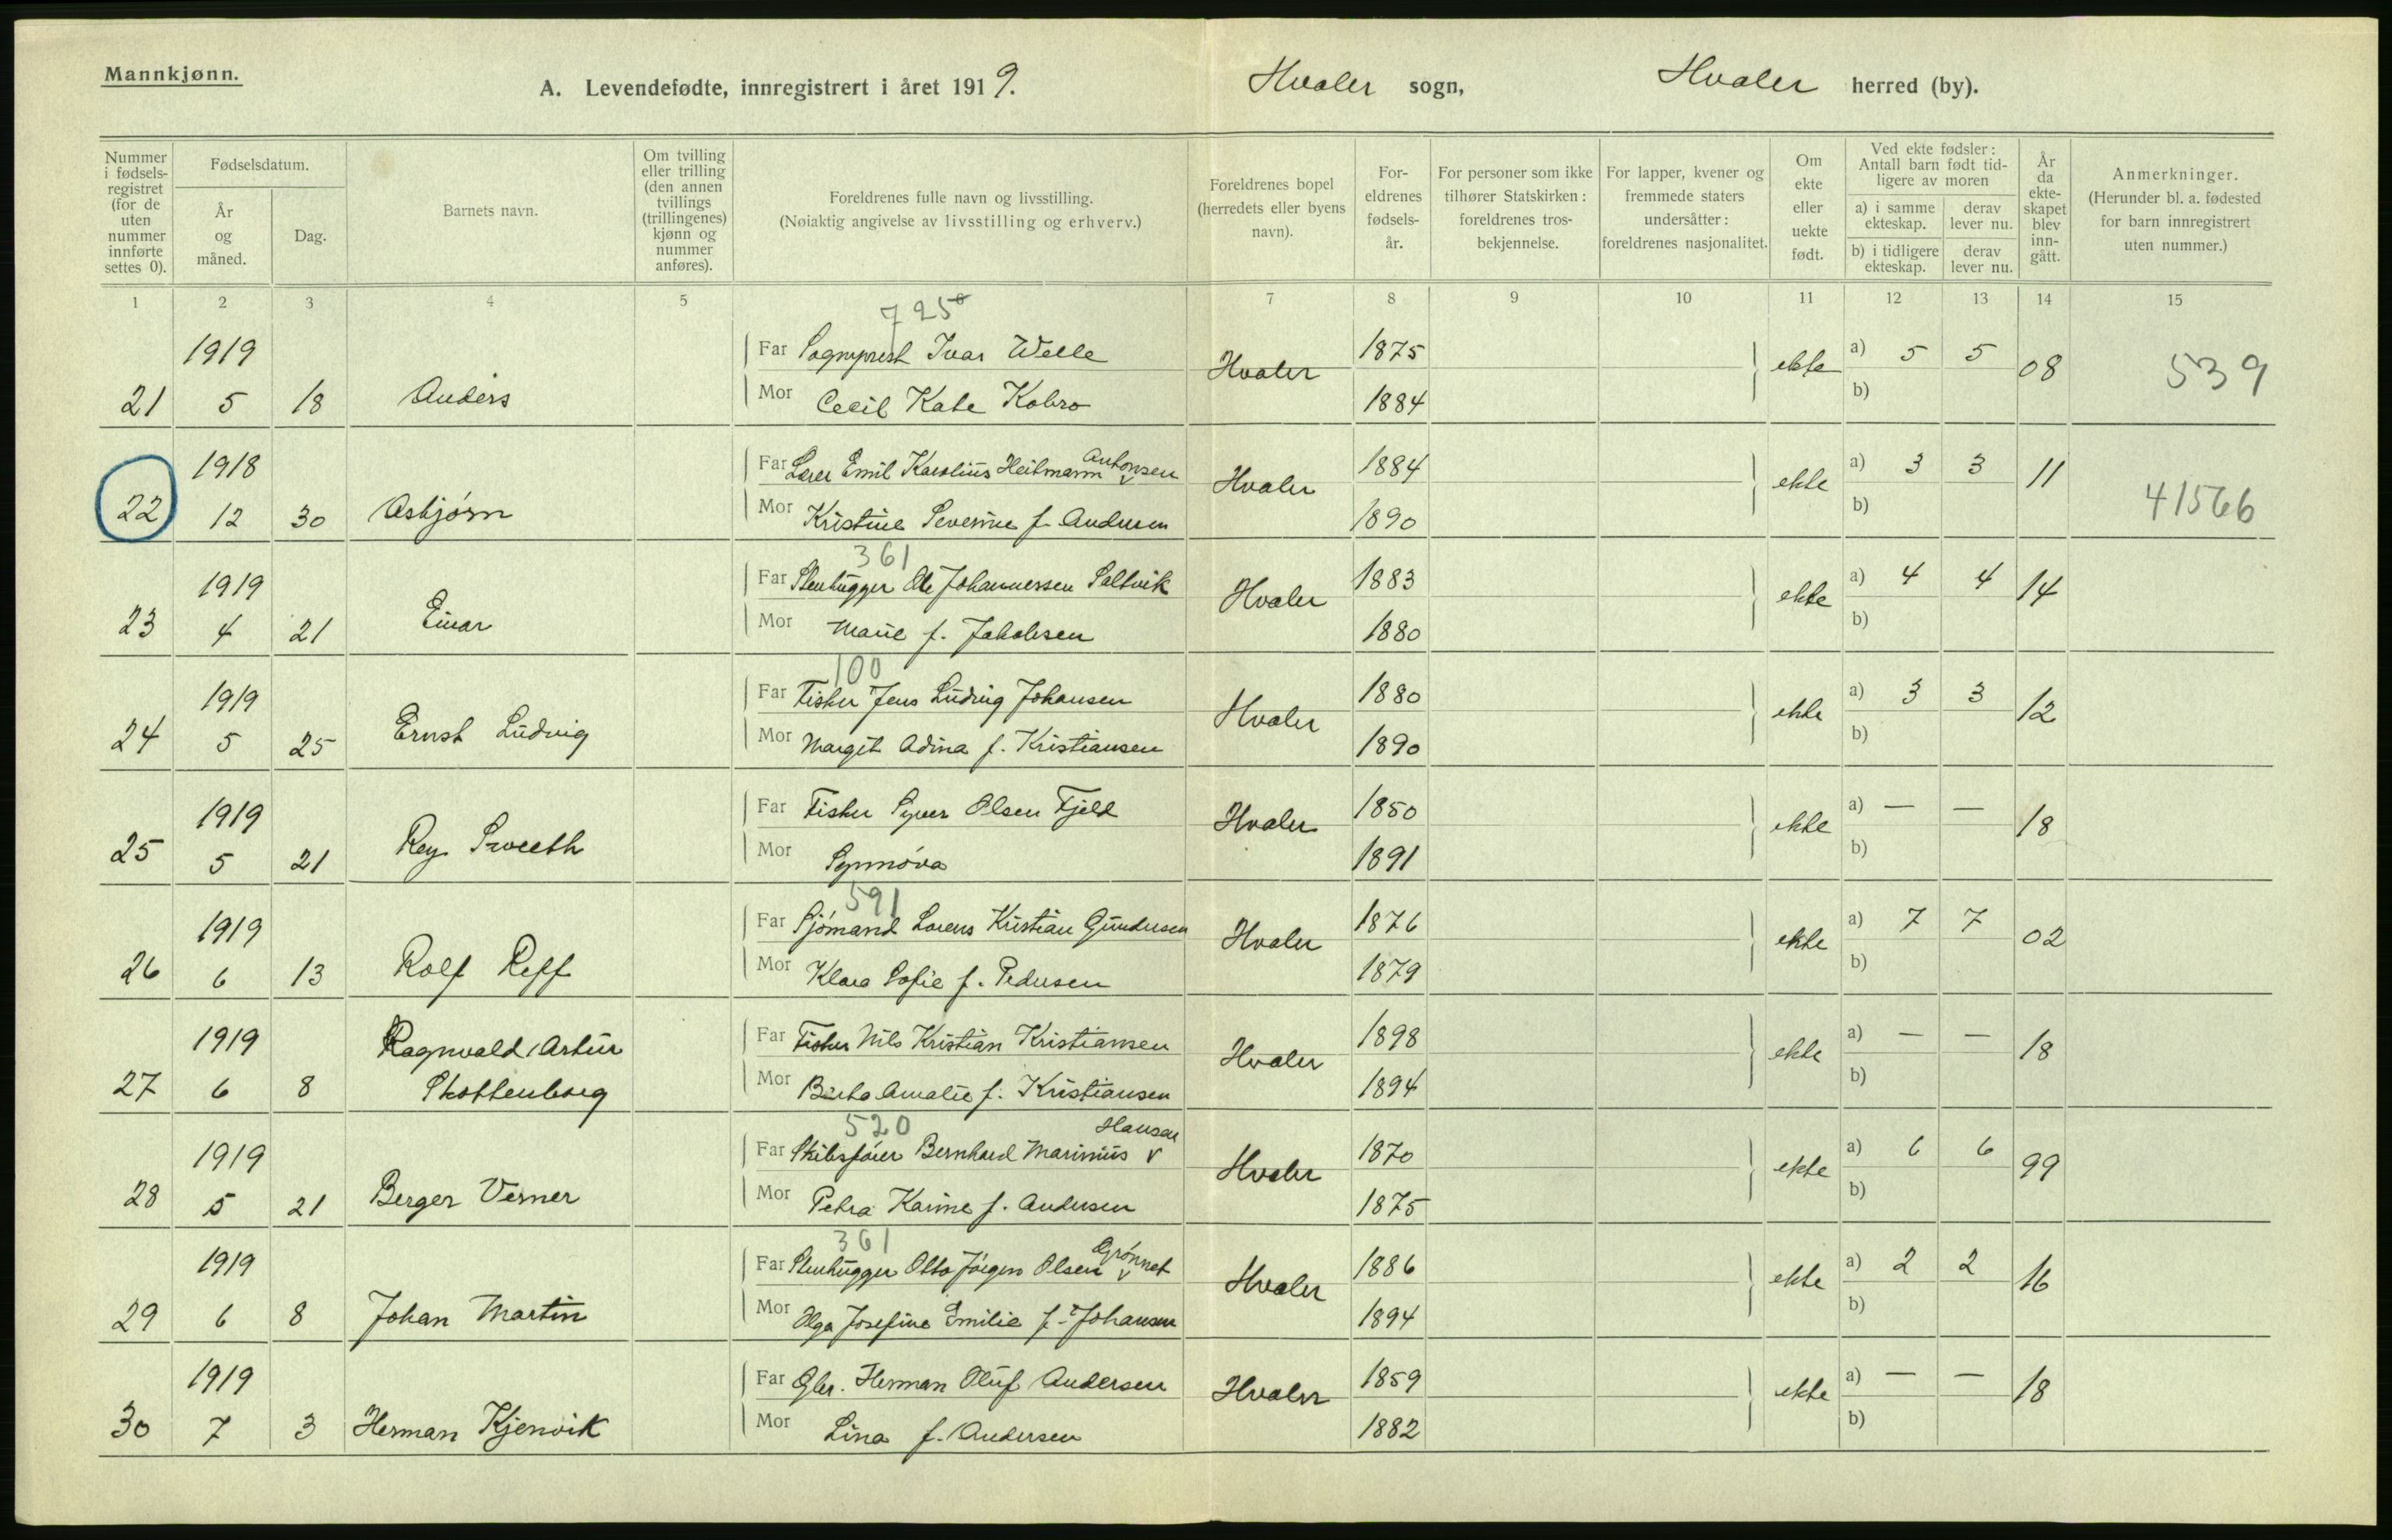 Mannkjønn.
A. Levendefødte, innregistrert i året 1919.
Hvaler sogn,
Hvaler herred (by).
Nummer i fødsels-registret (for de uten nummer innførte settes 0).
Fødselsdatum.
År og måned.
Dag.
Barnets navn.
Om tvilling eller trilling (den annen tvillings (trillingenes) kjønn og nummer anføres).
Foreldrenes fulle navn og livsstilling.
(Nøiaktig angivelse av livsstilling og erhverv.)
Foreldrenes bopel (herredets eller byens navn).
For-eldrenes fødsels-år.
For personer som ikke tilhører Statskirken: foreldrenes tros-bekjennelse.
For lapper, kvener og fremmede staters undersåtter: foreldrenes nasjonalitet.
Om ekte eller uekte født.
Ved ekte fødsler: Antall barn født tid-ligere av moren
a) i samme ekteskap.
derav lever nu.
b) i tidligere ekteskap.
derav lever nu.
År da ekte-skapet blev inn-gått.
Anmerkninger.
(Herunder bl. a. fødested for barn innregistrert uten nummer.)
1 2 3 4 5 7 8 9 10 11 12 13 14 15
725
1919 Far Sogneprest Ivar Welle 1875 a) 5 5
21 5 18 Anders Mor Cecil Kate Kobro Hvaler 1884 ekte b) 08 539
1918 Far Lærer Emil Karolius Heitmann Antonsen 1884 a) 3 3
22 12 30 Asbjørn Mor Kristine Severine f. Andersen Hvaler 1890 ekte b) 11 41566
361
1919 Far Stenhugger Ole Johannessen Saltvik 1883 a) 4 4
23 4 21 Einar Mor Marie f. Jakobsen Hvaler 1880 ekte b) 14
100
1919 Far Fisker Jens Ludvig Johansen 1880 a) 3 3
24 5 25 Ernst Ludvig Mor Margit Adina f. Kristiansen Hvaler 1890 ekte b) 12
1919 Far Fisker Syver Olsen Fjeld 1850 a) — —
25 5 21 Mor Synnøva Hvaler 1891 ekte b) 18
591
1919 Far Sjømand Lorens Kristian Gundersen 1876 a) 7 7
26 6 13 Rolf Reff Mor Klara Sofie f. Pedersen Hvaler 1879 ekte b) 02
1919 Ragnvald Artur Far Fisker Nils Kristian Kristiansen 1898 a) — —
27 6 8 Skottenborg Mor Berta Amalie f. Kristiansen Hvaler 1894 ekte b) 18
520
1919 Far Skibsfører Bernhard Marinius Hansen 1870 a) 6 6
28 5 21 Berger Verner Mor Petra Karine f. Andersen Hvaler 1875 ekte b) 99
361
1919 Far Stenhugger Otto Jørgen Olsen Grønnet 1886 a) 2 2
29 6 8 Johan Martin Mor Olga Josefine Emilie f. Johansen Hvaler 1894 ekte b) 16
1919 Far Gbr. Herman Oluf Andersen 1859 a) — —
30 7 3 Herman Kjenvik Mor Lina f. Andersen Hvaler 1882 ekte b) 18